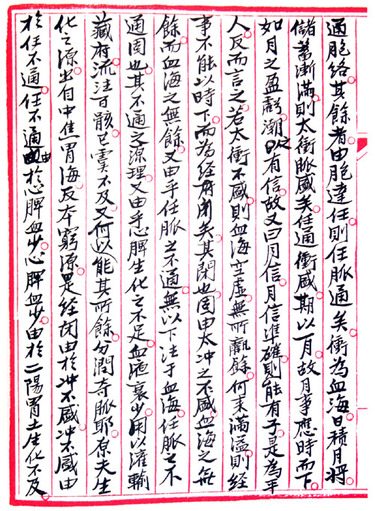 通胞络其餘者由胞達任則任脈通矣衝為血海日積月將
儲蓄漸滿則太衝脈盛矣任通衝盛期以一月故月事應時而下
如月之盈虧潮之有信故又曰月信月信準確則能有子是為平
人反而言之若太衝不盛則血海空虛無所羸餘何来滿溢則經
事不能以時下而為經閉矣其閉也固由太冲之不盛血海之無
餘而血海之無餘又由乎任脈之不通無以下注于血海任脈之不
通固也其不通之源理又由乎心脾生化之不足血液衰少用以灌輸
藏府流注百骸已覺不及又何以能其所餘分潤奇脈耶原夫生
化之源出自中焦胃海反本窮源是經閉由於冲不盛冲不盛由
於任不通任不通由於心脾血少心脾血少由於二陽胃土生化不及